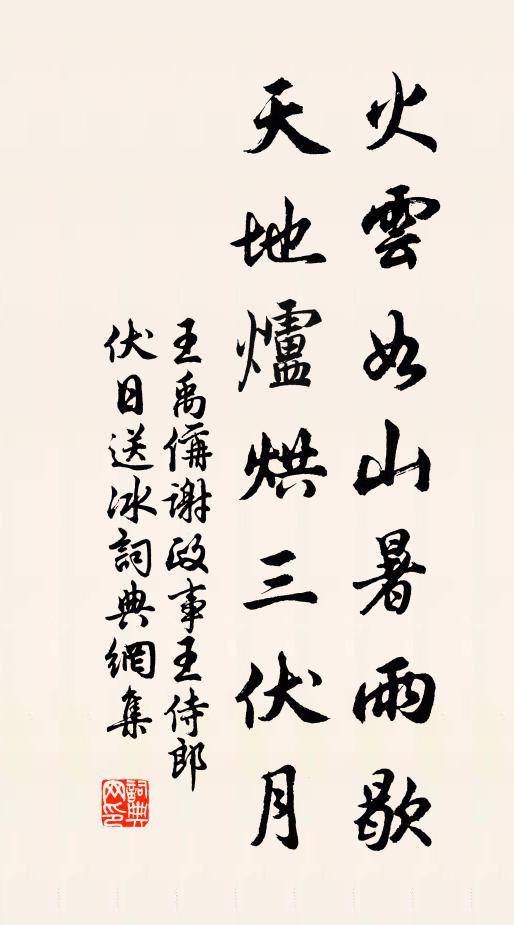 火雲如山暑雨歇
天地爐烘三伏月
王禹偁謝政事王侍郎
伏日送冰詞典網集
詞典网印